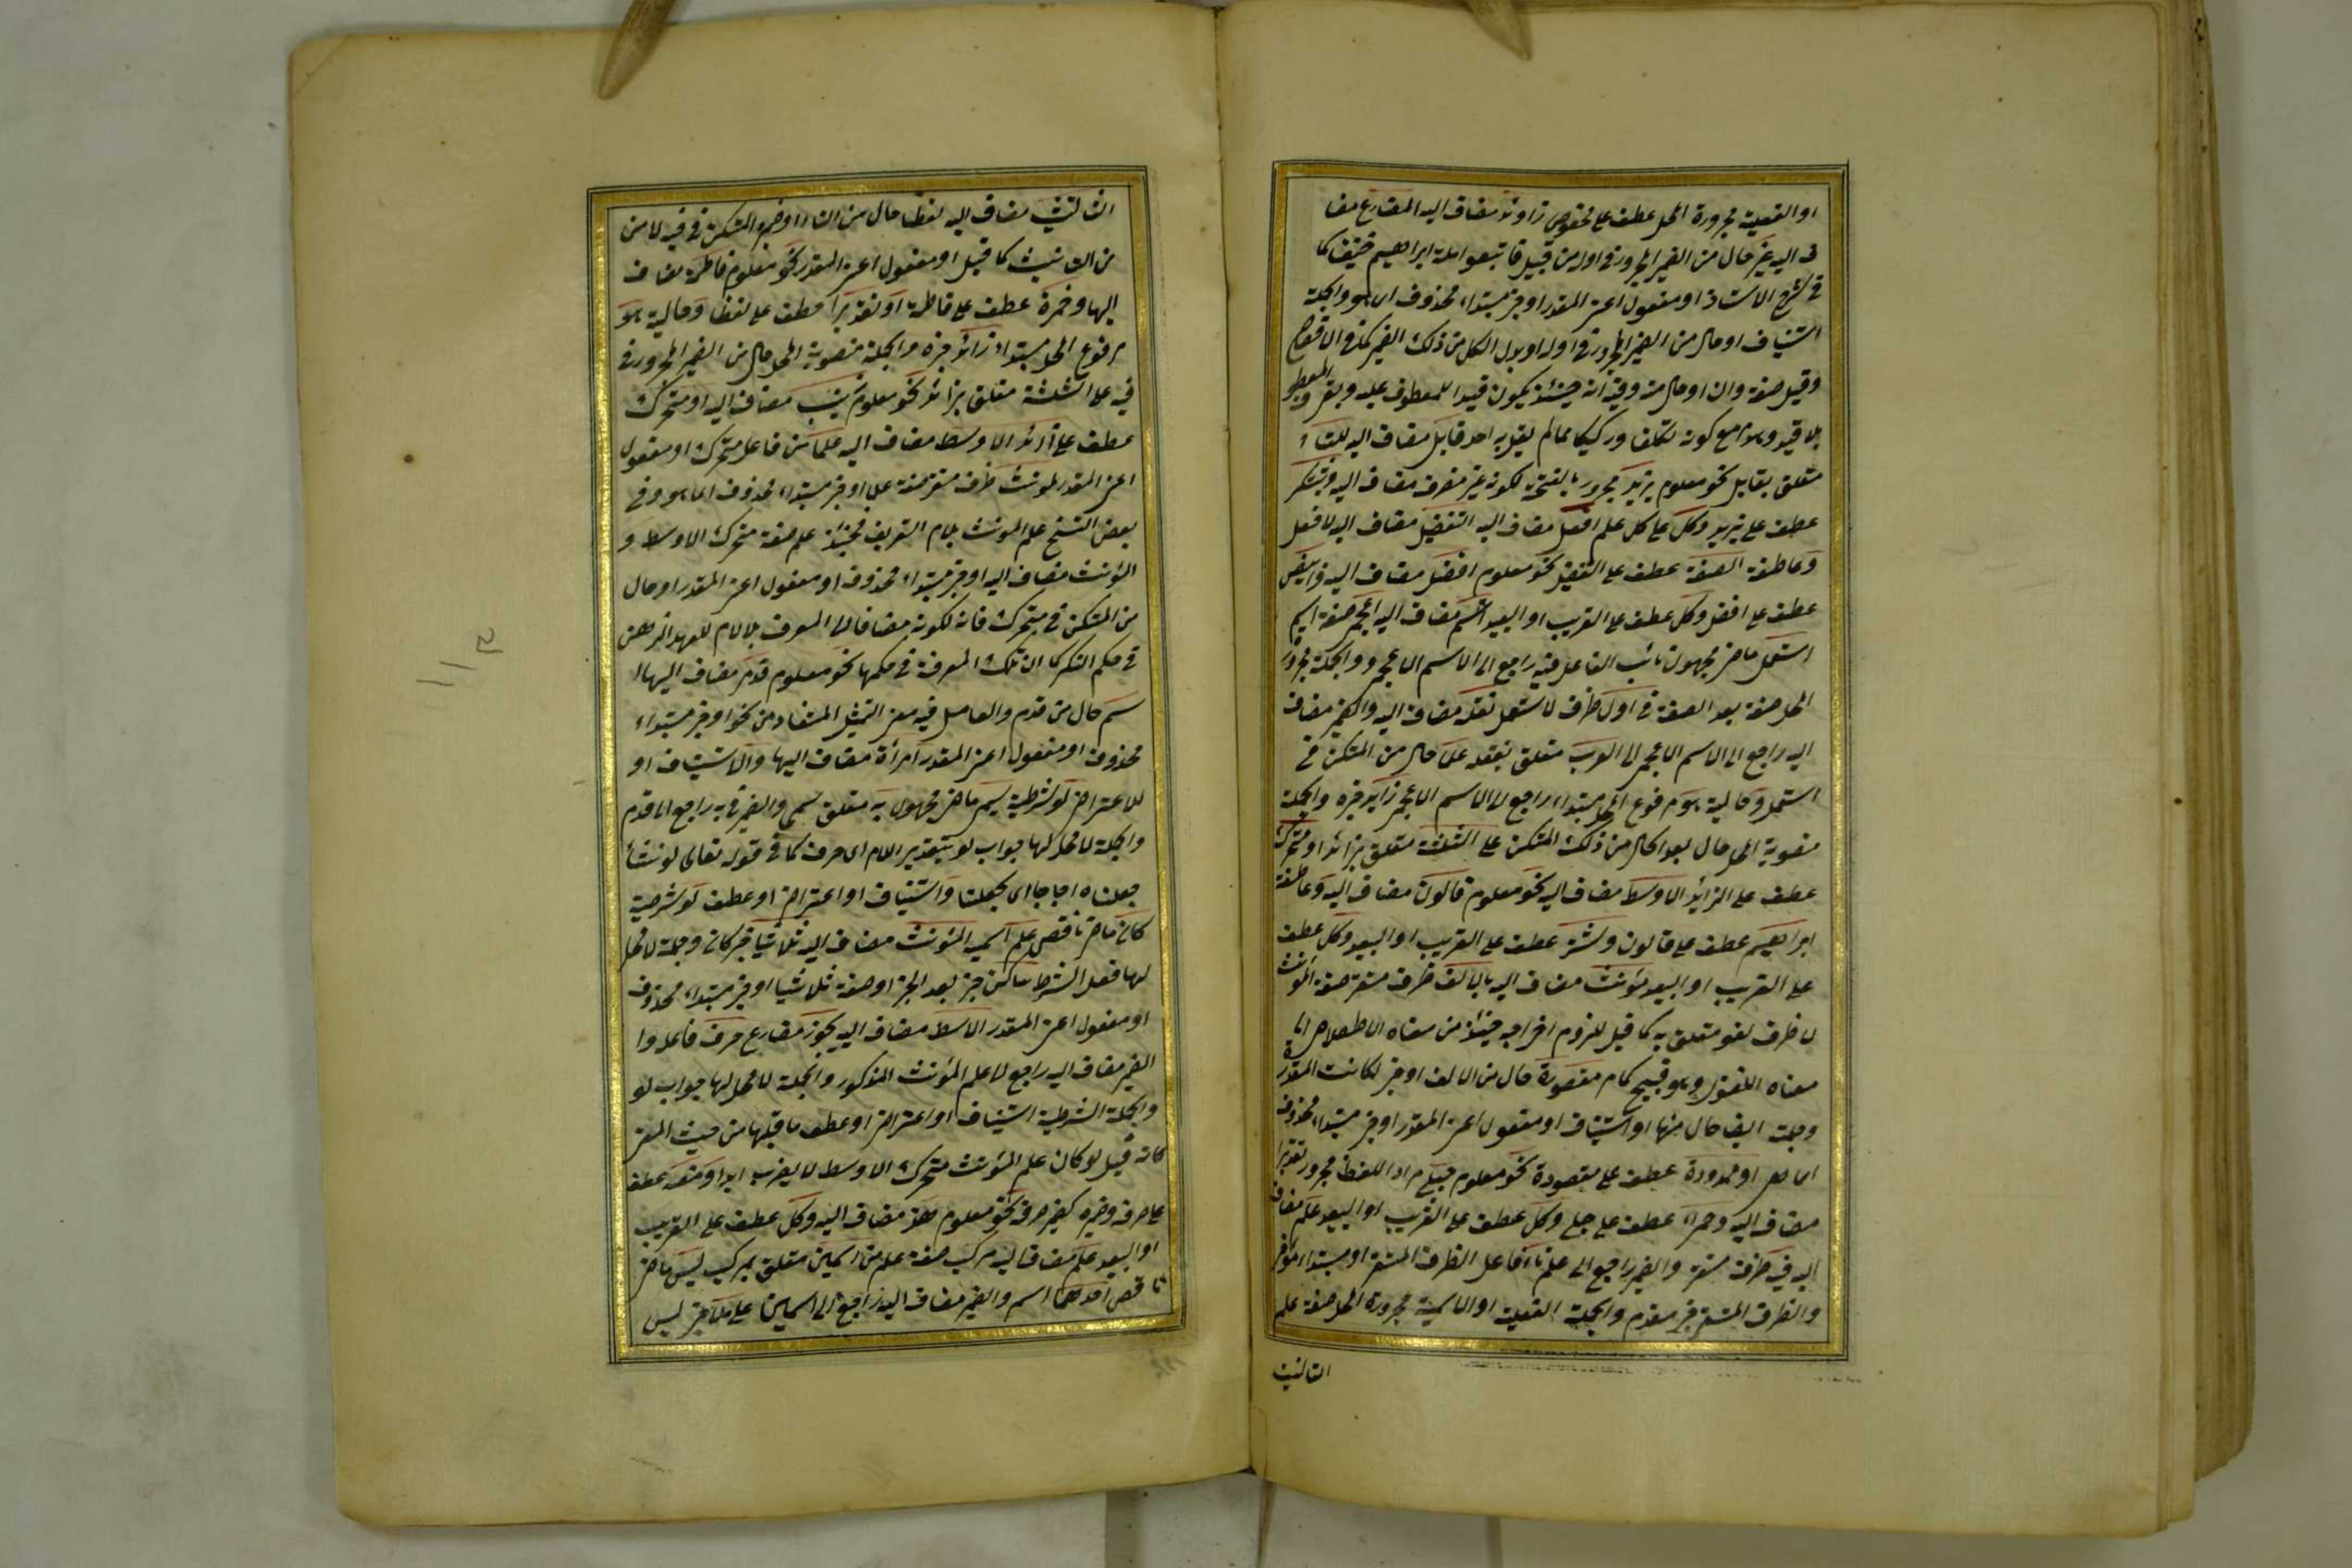 او الفعلية مجرورة المحل عطف على مخصوص زاوله مضاف اليه المضارع مضا
ف اليه غير حال من الضمير المجرور فى اوله من قبيل فاتبعوا ملة ابراهيم حنيفا كا
فى شرح الاستاذ او مفعول اعنى المقدر او خبر مبتداء محذوف اى هو والجملة
استيناف او حال من الضمير المجرور فى اوله او بدل الكل من ذلك الضمير كذا فى الافصاح
وقيل صفة وان او حال منه وفيه انه حينئذ يكون قيدا للمعطوف عليه وبقى المعطوف
بلا قيد وهو مع كونه تكلفا وركيكا مما لم يقل به احد قابل مضاف اليه للتاء
متعلق بقابل نحو معلوم يزيد مجرور بالفتحة لكونه غير منصرف مضاف اليه ويشكر
عطف على يزيد وكل على كل علم افعل مضاف اليه التفضيل مضاف اليه لافعل
وعاطفة الصفة عطف على التفضيل نحو معلوم افضل مضاف اليه وابيض
عطف على افضل وكل عطف على القريب او البعيد اسم مضاف اليه اعجمى صفة اسم
استعمل ماض مجهول نائب الفاعل فيه راجع الى الاسم الاعجمى والجملة مجرورة
المحل صفة بعد الصفة فى اول ظرف لاستعمل نقله مضاف اليه والضمير مضاف
اليه راجع الى الاسم الاعجمى الى العرب متعلق بنقله علما حال من المتكن فى
استعمل وحالية هو مرفوع المحل مبتداء راجع الى الاسم الاعجمى زايد خبره والجملة
منصوبة المحل حال بعد الحال من ذلك المتكن على الثلثة متعلق بزائد او متحرك
عطف على الزايد الاوسط مضاف اليه نحو معلوم قالون مضاف اليه وعاطفة
ابراهيم عطف على قالون وشتر عطف على القريب او البعيد وكل عطف
على القريب او البعيد مؤنث مضاف اليه بالالف ظرف مستقر صفة المؤنث
لا ظرف لغو متعلق به كما قيل للزوم اخراجه حينئذ من معناه الاصطلاحى الى
معناه اللغوى وهو قبيح كما مر مقصورة حال من الالف او خبر لكانت المقدرة
وجملته ايضا حال منها او استيناف او مفعول اعنى المقدر او خبر مبتداء محذوف
اى هى او ممدودة عطف على مقصورة نحو معلوم حبلى مراد اللفظ مجرور تقديرا
مضاف اليه وحمراء عطف على حبلى وكل عطف على القريب او البعيد علم مضاف
اليه فيه ظرف مستقر والضمير راجع الى علم تا فاعل الظرف المستقر او مبتداء مؤخر
والظرف المستقر خبر مقدم والجملة الفعلية او الاسمية مجرورة المحل صفة علم
التأنيث
التأنيث مضاف اليه لفظا حال من التاء او ضميره المتكن فى فيه لا من
من التأنيث كما قيل او مفعول اعنى المقدر نحو معلوم فاطمة مضاف
اليها وحمزة عطف على فاطمة او تقديرا عطف على لفظا وحالية هو
مرفوع المحل مبتداء زائد خبره والجملة منصوبة المحل حال من الضمير المجرور فى
فيه على الثلثة متعلق بزائد نحو معلوم زينب مضاف اليه او متحرك
عطف على زائد الاوسط مضاف اليه علما من فاعل متحرك او مفعول
اعنى المقدر لمؤنث ظرف مستقر صفة علما او خبر مبتداء محذوف اى هو وفى
بعض النسخ علم المؤنث بلام التعريف فحينئذ علم صفة متحرك الاوسط و
المؤنث مضاف اليه او خبر مبتداء محذوف او مفعول اعنى المقدر او حال
من المتكن فى متحرك فانه لكونه مضافا الى المعرف بلالام للعهد الذهنى
فى حكم النكر كما ان تلك المعرفة فى حكمها نحو معلوم قدم مضاف اليها ا
سم حال من قدم والعامل فيه معنى التمثيل المستفاد من نحو او خبر مبتداء
محذوف او مفعول اعنى المقدر امرأة مضاف اليها والاستيناف او
للاعتراض لو شرطية سمى ماض مجهول به متعلق سمى والضمير فى به راجع الى قدم
والجملة لا محل لها جواب لو بتقدير اللام اى صرف كما فى قوله تعالى لو نشأ
جعلناه اجاجا اى لجعلنا واستيناف او اعتراض او عطف لو شرطية
كان ماض ناقص علم اسمه المؤنث مضاف اليه ثلاثيا خبر كان وجملة لا محل
لها فعل الشرط ساكن خبر بعد الخبر او صفة ثلاثيا او خبر مبتداء محذوف
او مفعول اعنى المقدر الاوسط مضاف اليه يجوز مضارع صرف فاعله وا
الضمير مضاف اليه راجع الى علم المؤنث المذكور والجملة لا محل لها جواب لو
والجملة الشرطية استيناف او اعتراض او عطف ما قبلها من حيث المعنى
كانه قيل لو كان علم المؤنث متحرك الاوسط لا يضرب ابدا ومنعه عطف
على صرفه وضميره كضمير صرفه نحو معلوم هند مضاف اليه وكل عطف على القريب
او البعيد علم مضاف اليه مركب صفة علم من اسمين متعلق بمركب ليس ماض
ناقص احدهما اسم والضمير مضاف اليه راجع الى اسمين عاملا خبر ليس